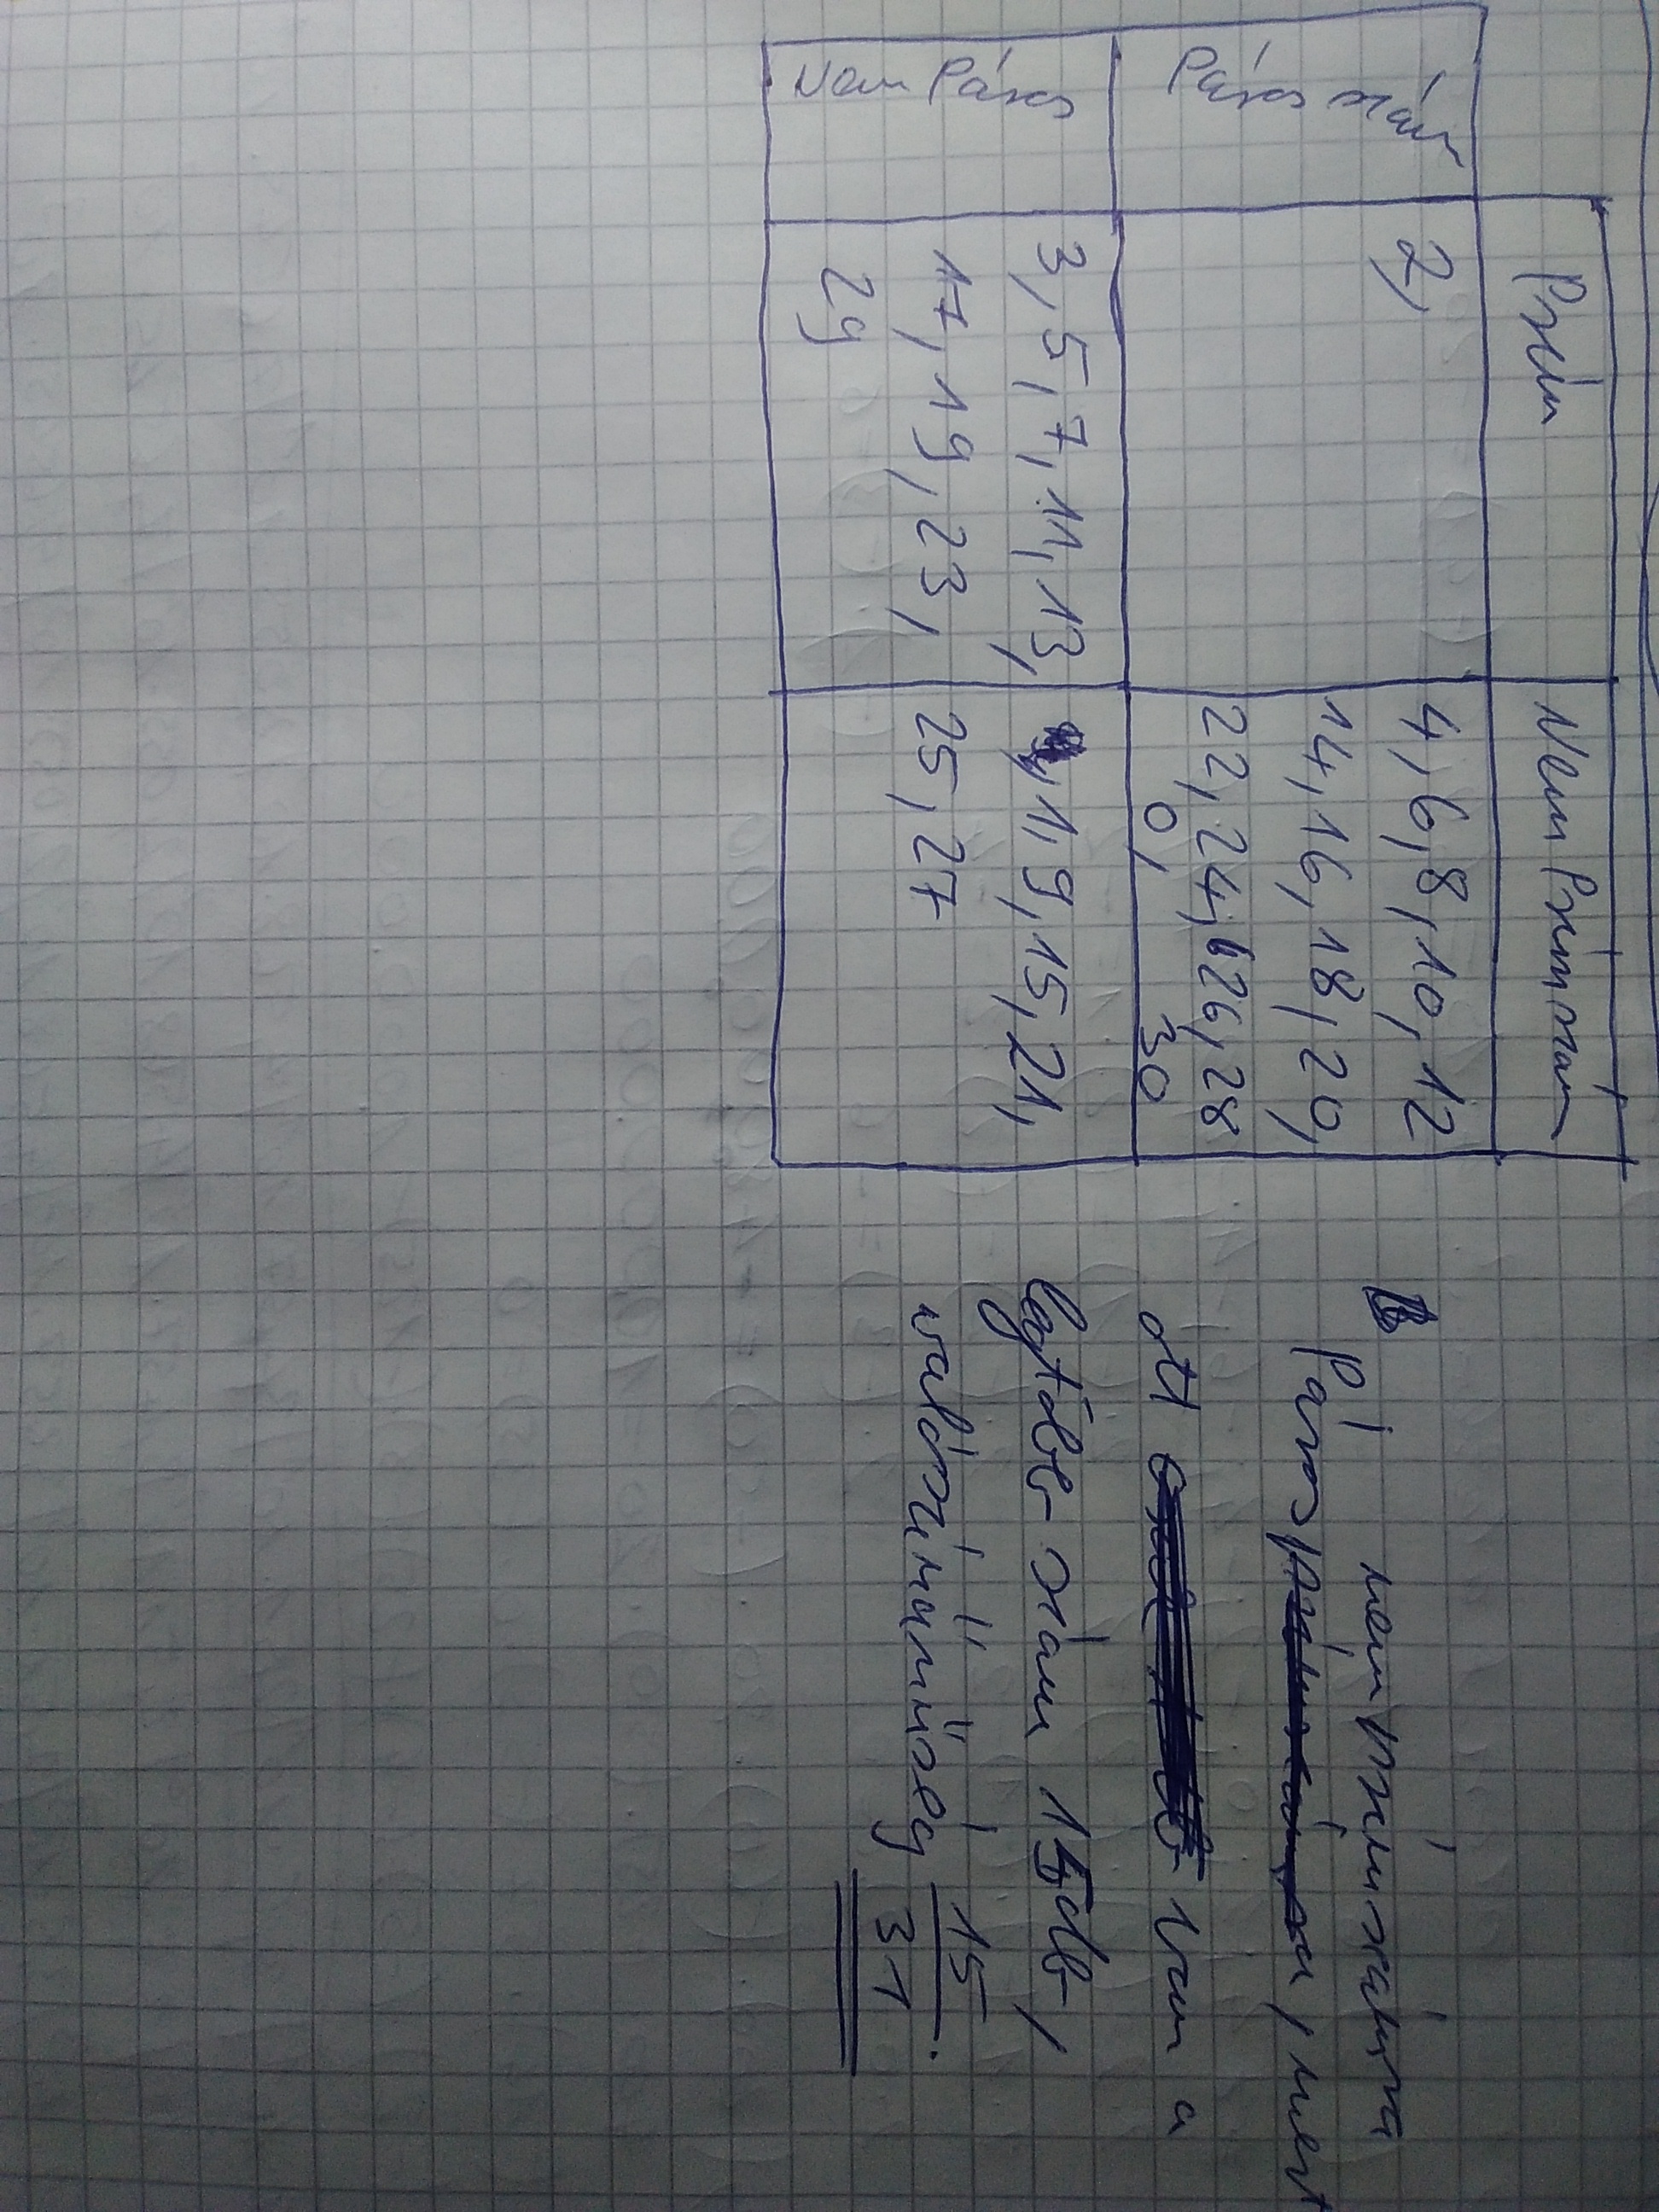 Prím
Nem Prímszám
Páros szám
2,
4, 6, 8, 10, 12
14, 16, 18, 20,
22, 24, 26, 28
0, 30
Nem Páros
3, 5, 7, 11, 13,
17, 19, 23,
29
1, 9, 15, 21,
25, 27
nem prímszámra
Páros, mert
ott van a
legtöbb szám 15db,
valószínűség 15/31.